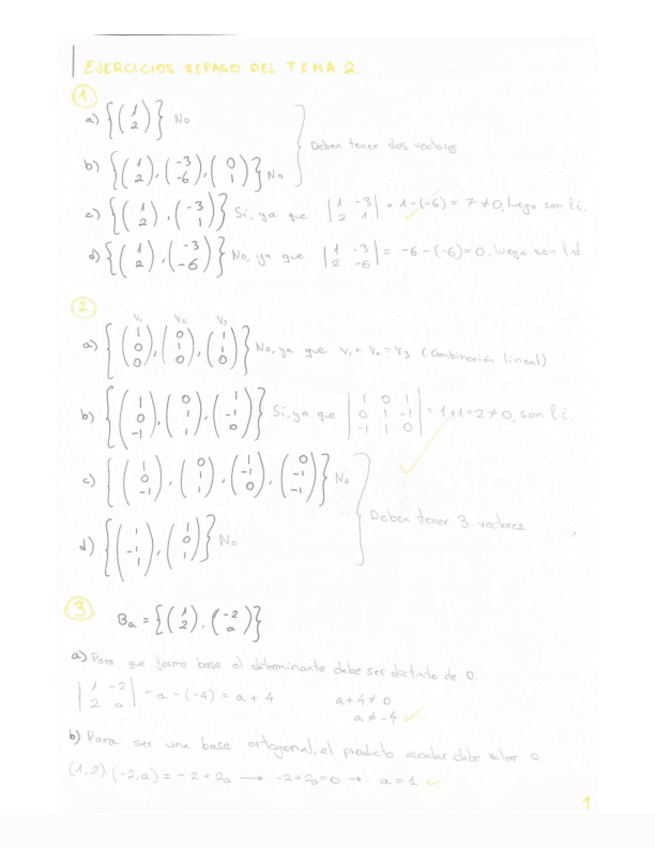 EJERCICIOS REPASO DEL TEMA 2.
1.
a) {(1 2)} No
Deben tener dos vectores
b) {(1 2), (-3 -6), (0 1)} No
c) {(1 2), (-3 1)} Sí, ya que |1 -3; 2 1| = 1-(-6) = 7 ≠ 0, luego son l.i.
d) {(1 2), (-3 -6)} No, ya que |1 -3; 2 -6| = -6-(-6) = 0, luego son l.d.
2.
V₁ V₂ V₃
a) {(1 0 0), (0 1 0), (1 1 0)} No, ya que V₁ + V₂ = V₃ (Combinación lineal)
b) {(1 0 -1), (0 1 1), (1 -1 0)} Sí, ya que |1 0 1; 0 1 -1; -1 1 0| = 1+1=2 ≠ 0, son l.i.
c) {(1 0 -1), (0 1 1), (1 -1 0), (0 -1 -1)} No
Deben tener 3 vectores
d) {(1 -1 1), (1 0 1)} No
3. Ba = {(1 2), (-2 a)}
a) Para que forme base el determinante debe ser distinto de 0.
|1 -2; 2 a| = a-(-4) = a+4 a+4 ≠ 0
a ≠ -4 ✓
b) Para ser una base ortogonal, el producto escalar debe valer 0.
(1,2)·(-2,a) = -2+2a → -2+2a=0 → a=1 ✓
1